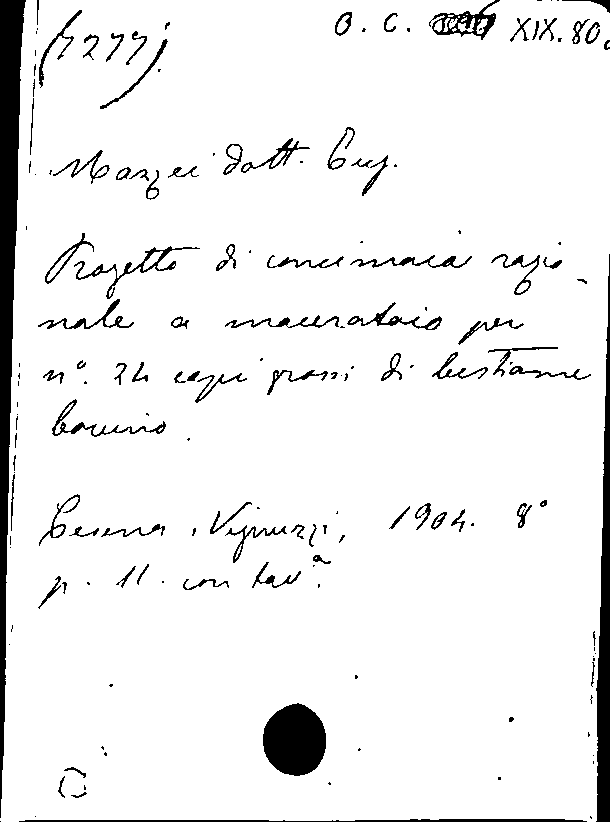 (7277)
O. C. XIX. 80.
Mazzei dott. Eug.
Progetto di concimaia razio-
nale a maceratoio per
n°. 24 capi grossi di bestiame
bovino.
Cesena, Vignuzzi, 1904. 8°
p. 11. con tavª.